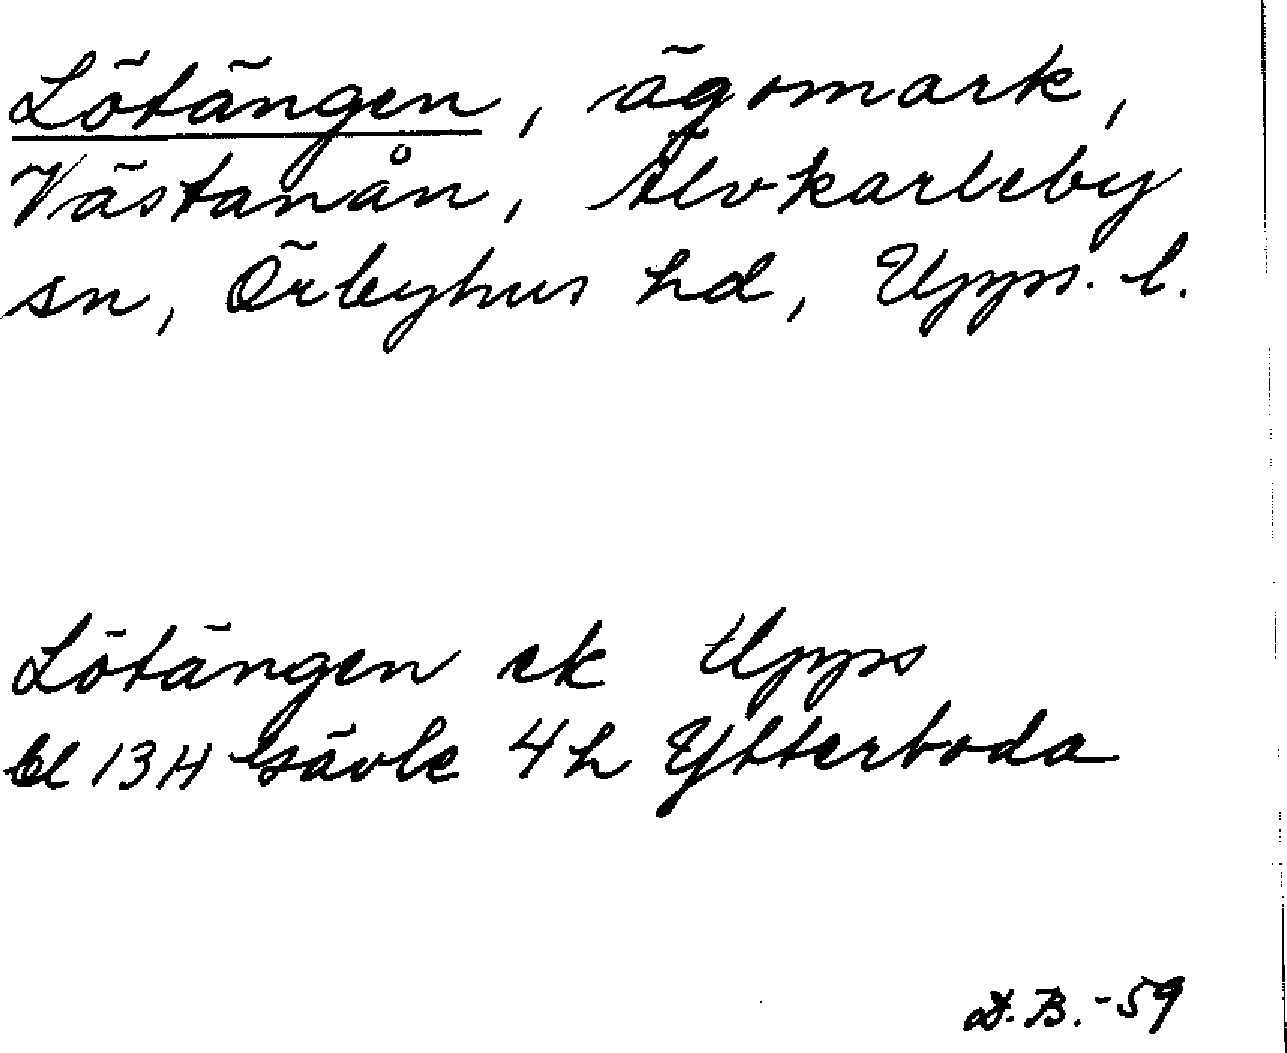 Lötängen, ägomark,
Västanån, Älvkarleby
sn, Örbyhus hd, Upps. l.
Lötängen ek Upps
bl 13H Gävle 4h Ytterboda
D.B.-59